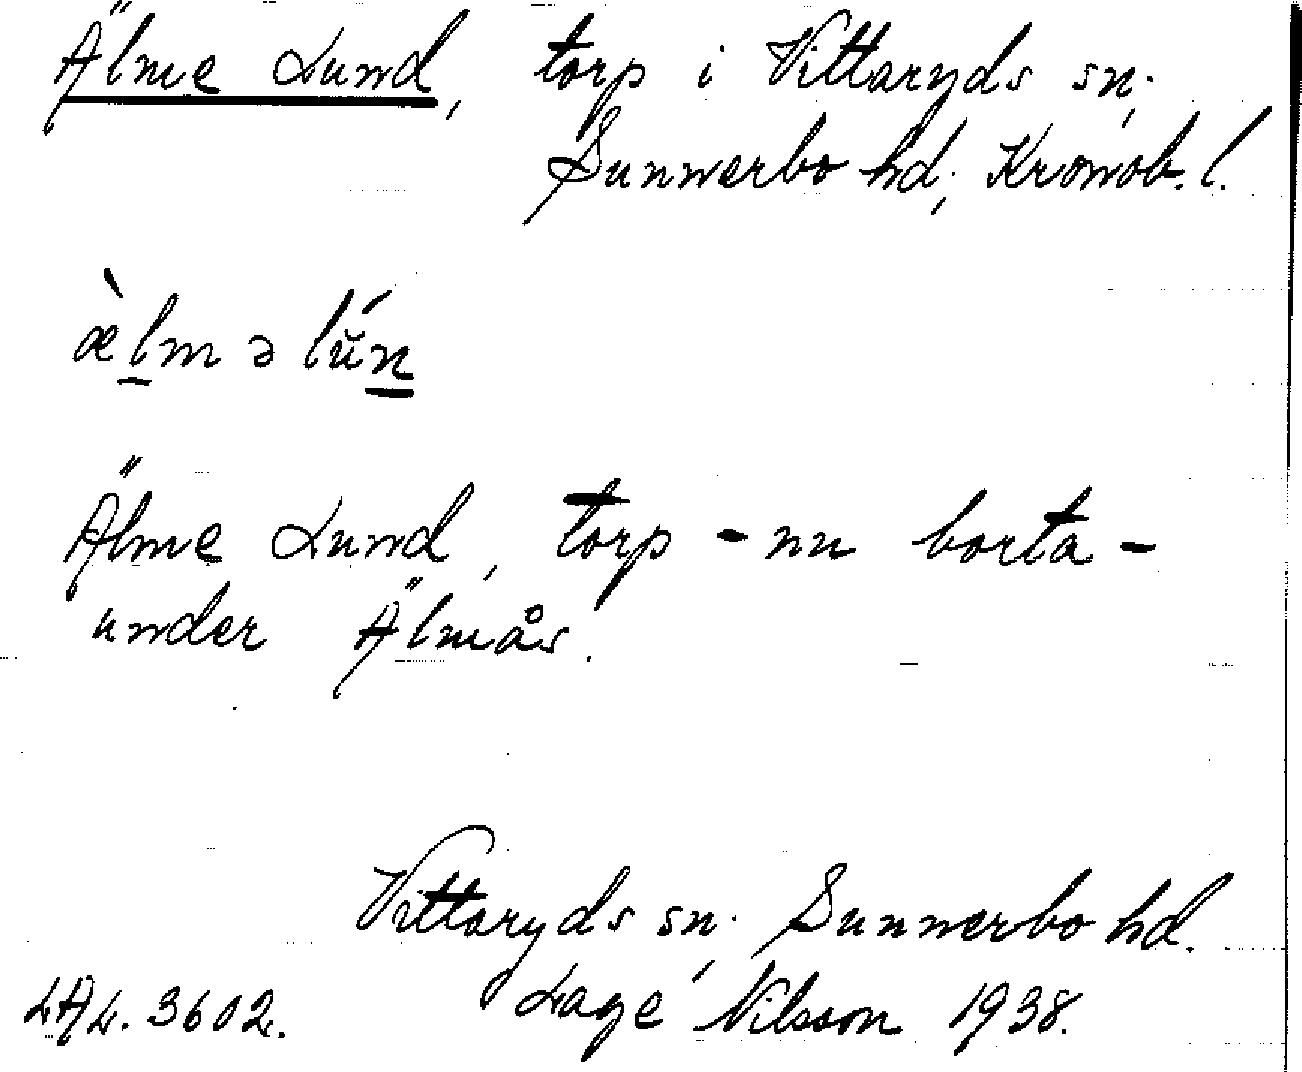 Älme Lund, torp i Vittaryds sn.,
Sunnerbo hd., Kronob. l.
æ̀lm ə lŭ́n
Älme Lund, torp - nu borta -
under Älmås.
Vittaryds sn., Sunnerbo hd.
LAL. 3602. Lage Nilsson 1938.